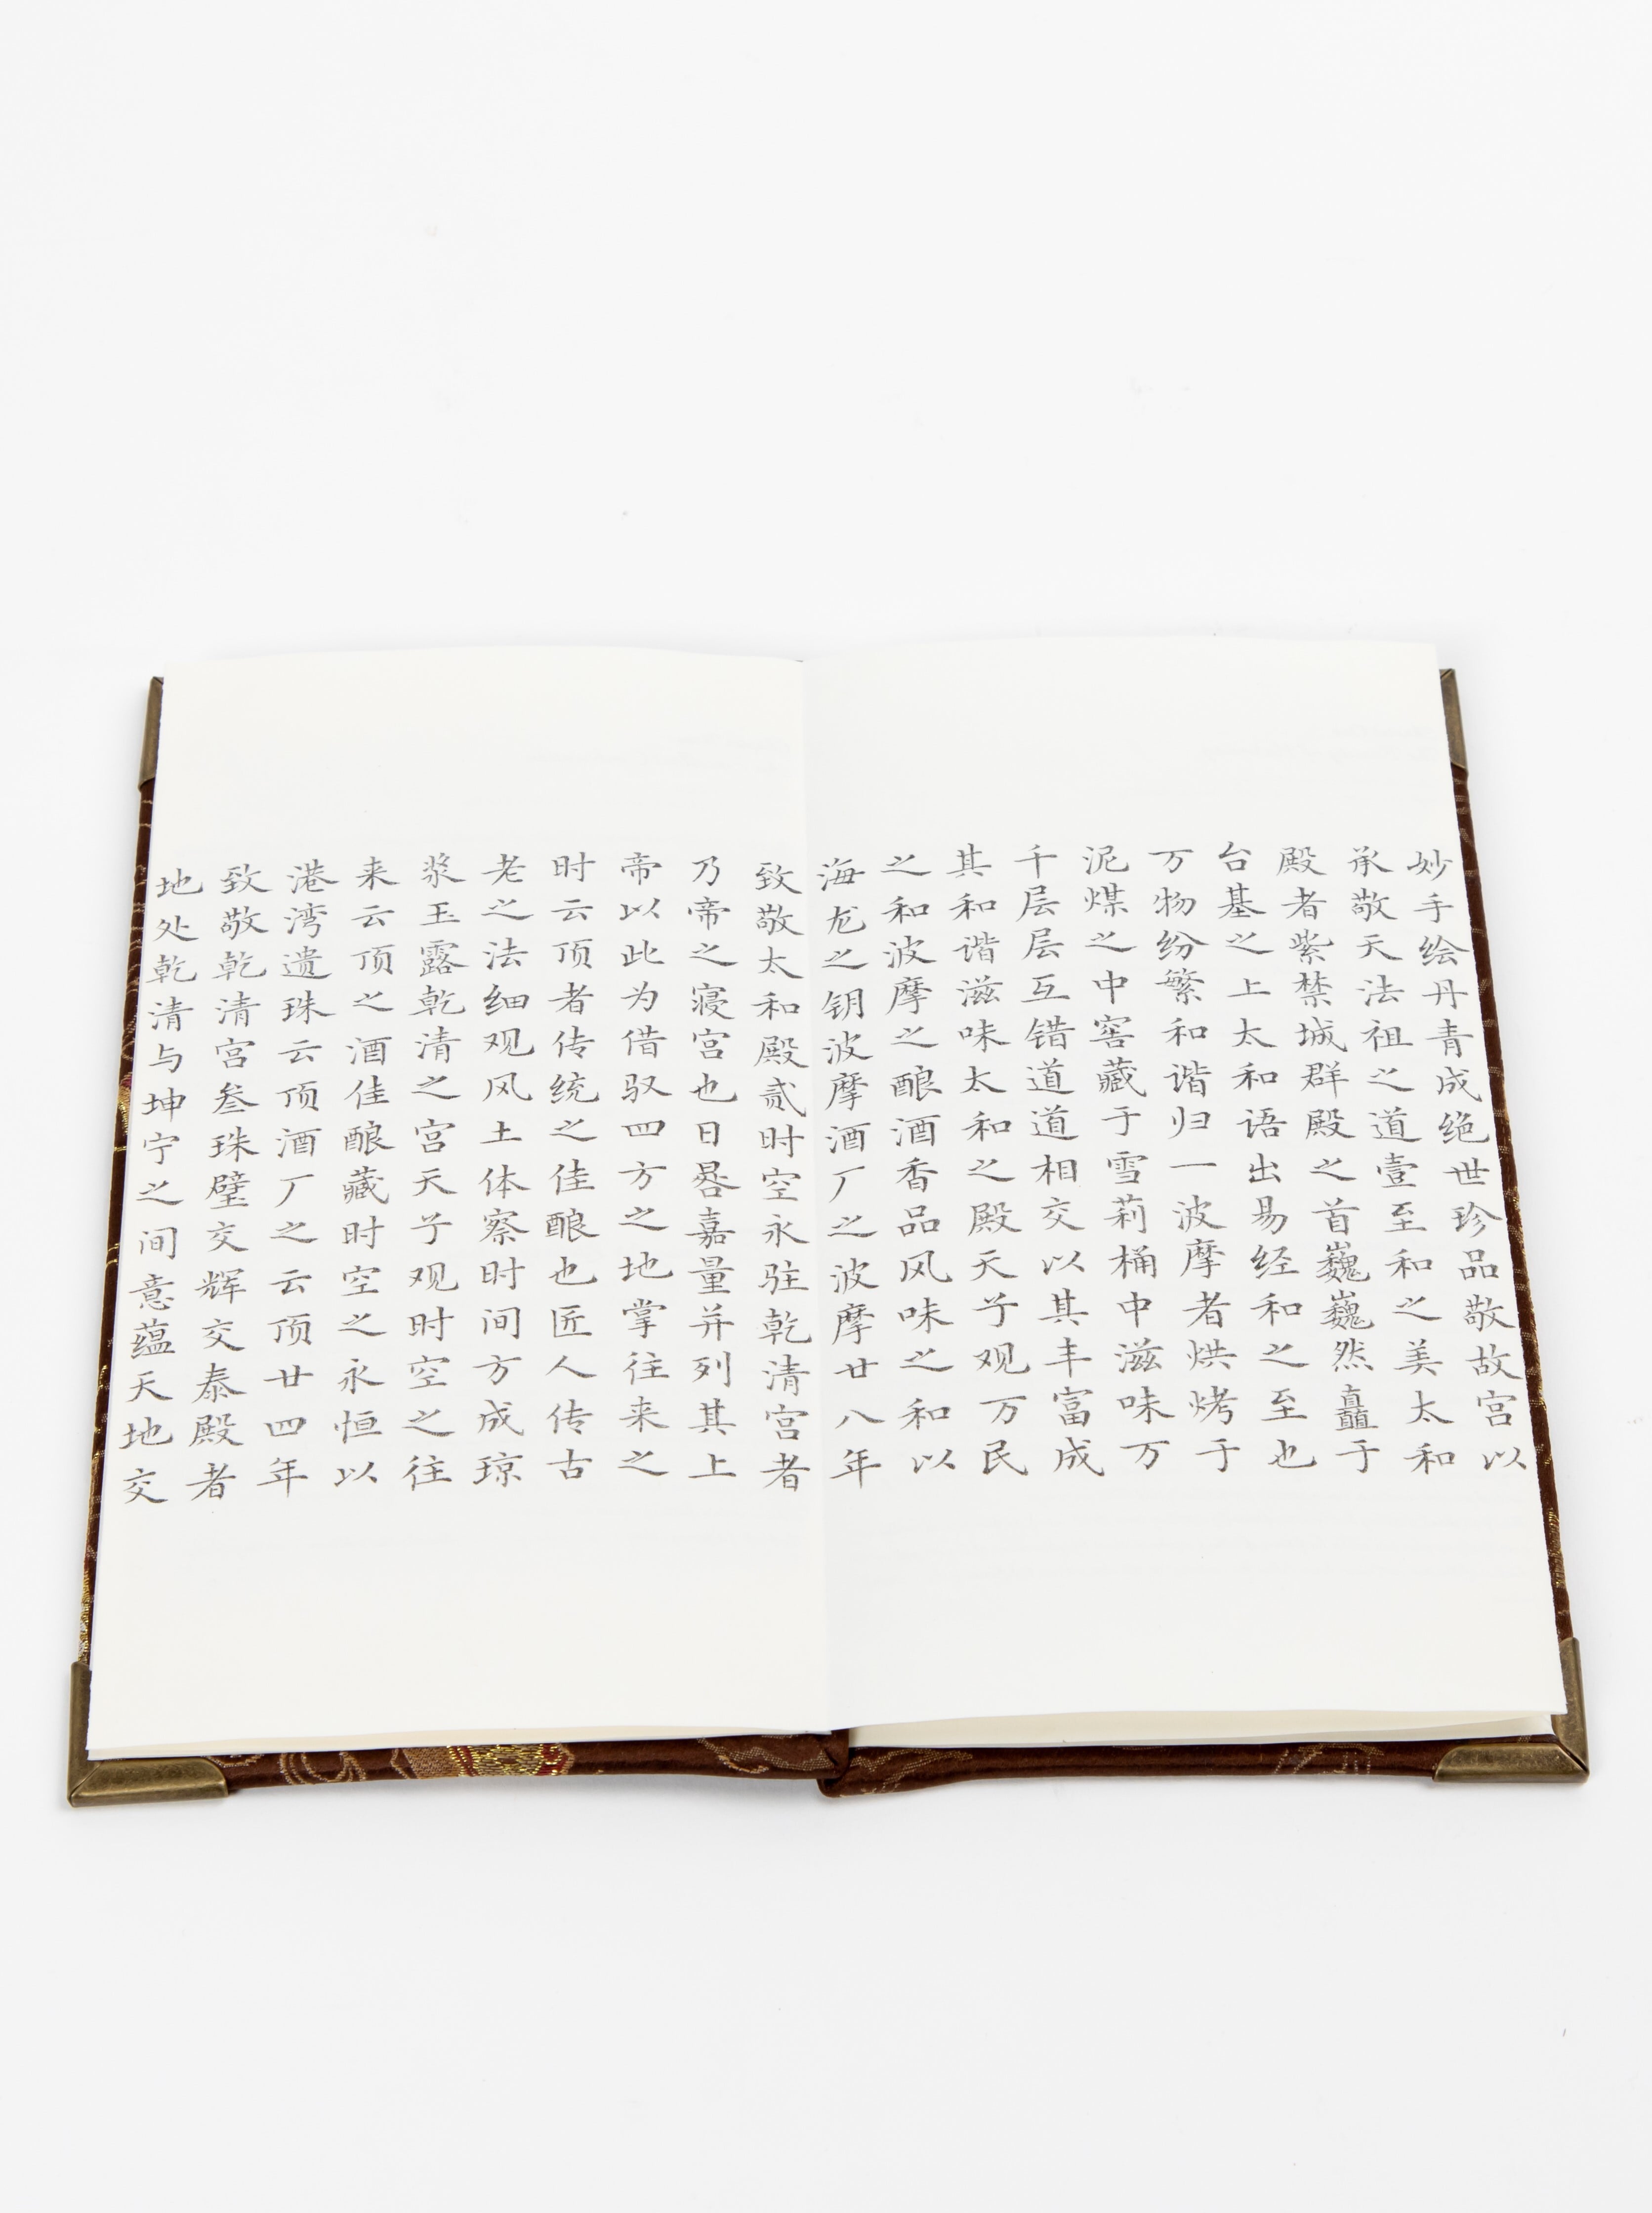 妙手绘丹青成绝世珍品敬故宫以
承敬天法祖之道壹至和之美太和
殿者紫禁城群殿之首巍巍然矗于
台基之上太和语出易经和之至也
万物纷繁和谐归一波摩者烘烤于
泥煤之中窖藏于雪莉桶中滋味万
千层层互错道道相交以其丰富成
其和谐滋味太和之殿天子观万民
之和波摩之酿酒香品风味之和以
海龙之钥波摩酒厂之波摩廿八年
致敬太和殿贰时空永驻乾清宫者
乃帝之寝宫也日晷嘉量并列其上
帝以此为借驭四方之地掌往来之
时云顶者传统之佳酿也匠人传古
老之法细观风土体察时间方成琼
浆玉露乾清之宫天子观时空之往
来云顶之酒佳酿藏时空之永恒以
港湾遗珠云顶酒厂之云顶廿四年
致敬乾清宫叁珠璧交辉交泰殿者
地处乾清与坤宁之间意蕴天地交